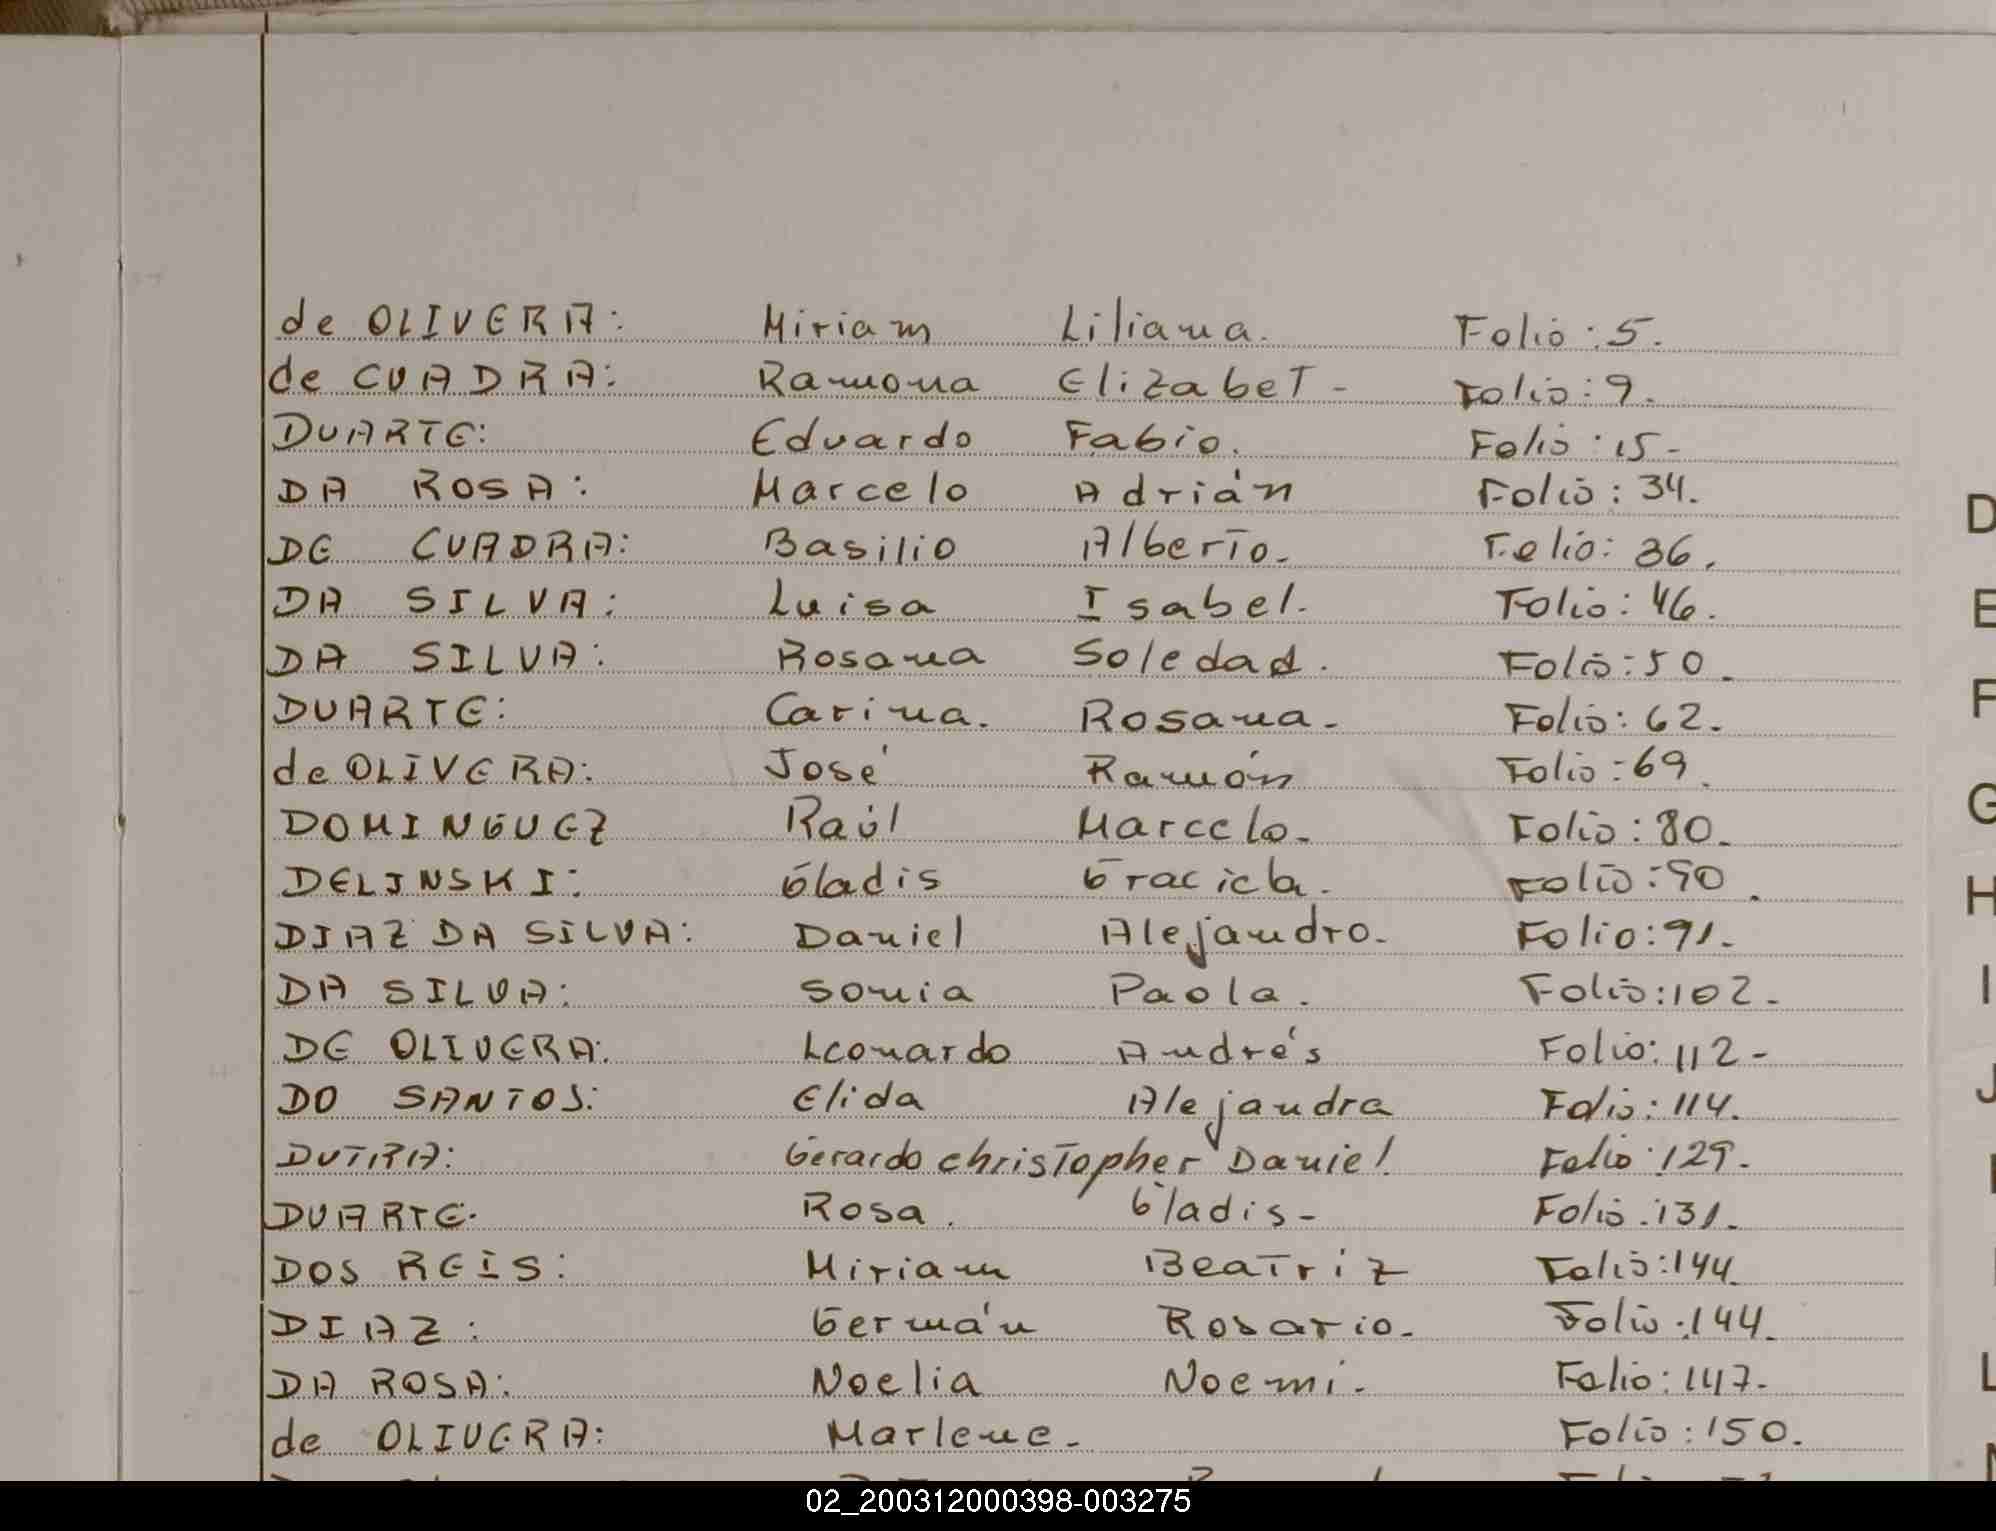 de OLIVERA: Miriam Liliana. Folio: 5.
de CUADRA: Ramona Elizabet - Folio: 9.
DUARTE: Eduardo Fabio. Folio: 15-
DA ROSA: Marcelo Adrián Folio: 34.
DE CUADRA: Basilio Alberto. Folio: 36.
DA SILVA: Luisa Isabel. Folio: 46.
DA SILVA: Rosana Soledad. Folio: 50.
DUARTE: Carina. Rosana- Folio: 62.
de OLIVERA: José Ramón Folio: 69.
DOMINGUEZ Raúl Marcelo. Folio: 80.
DELINSKI: Gladis Graciela. Folio: 90.
DIAZ DA SILVA: Daniel Alejandro. Folio: 91.
DA SILVA: Sonia Paola. Folio: 102.
DE OLIVERA: Leonardo Andrés Folio: 112-
DO SANTOS: Elida Alejandra Folio: 114.
DUTRA: Gerardo christopher Daniel Folio: 129.
DUARTE. Rosa. Gladis- Folio: 131.
DOS REIS: Miriam Beatriz Folio: 144.
DIAZ: Germán Rosario. Folio: 144.
DA ROSA: Noelia Noemi. Folio: 147.
de OLIVERA: Marlene. Folio: 150.
D
E
F
G
H
I
J
L
02_200312000398-003275